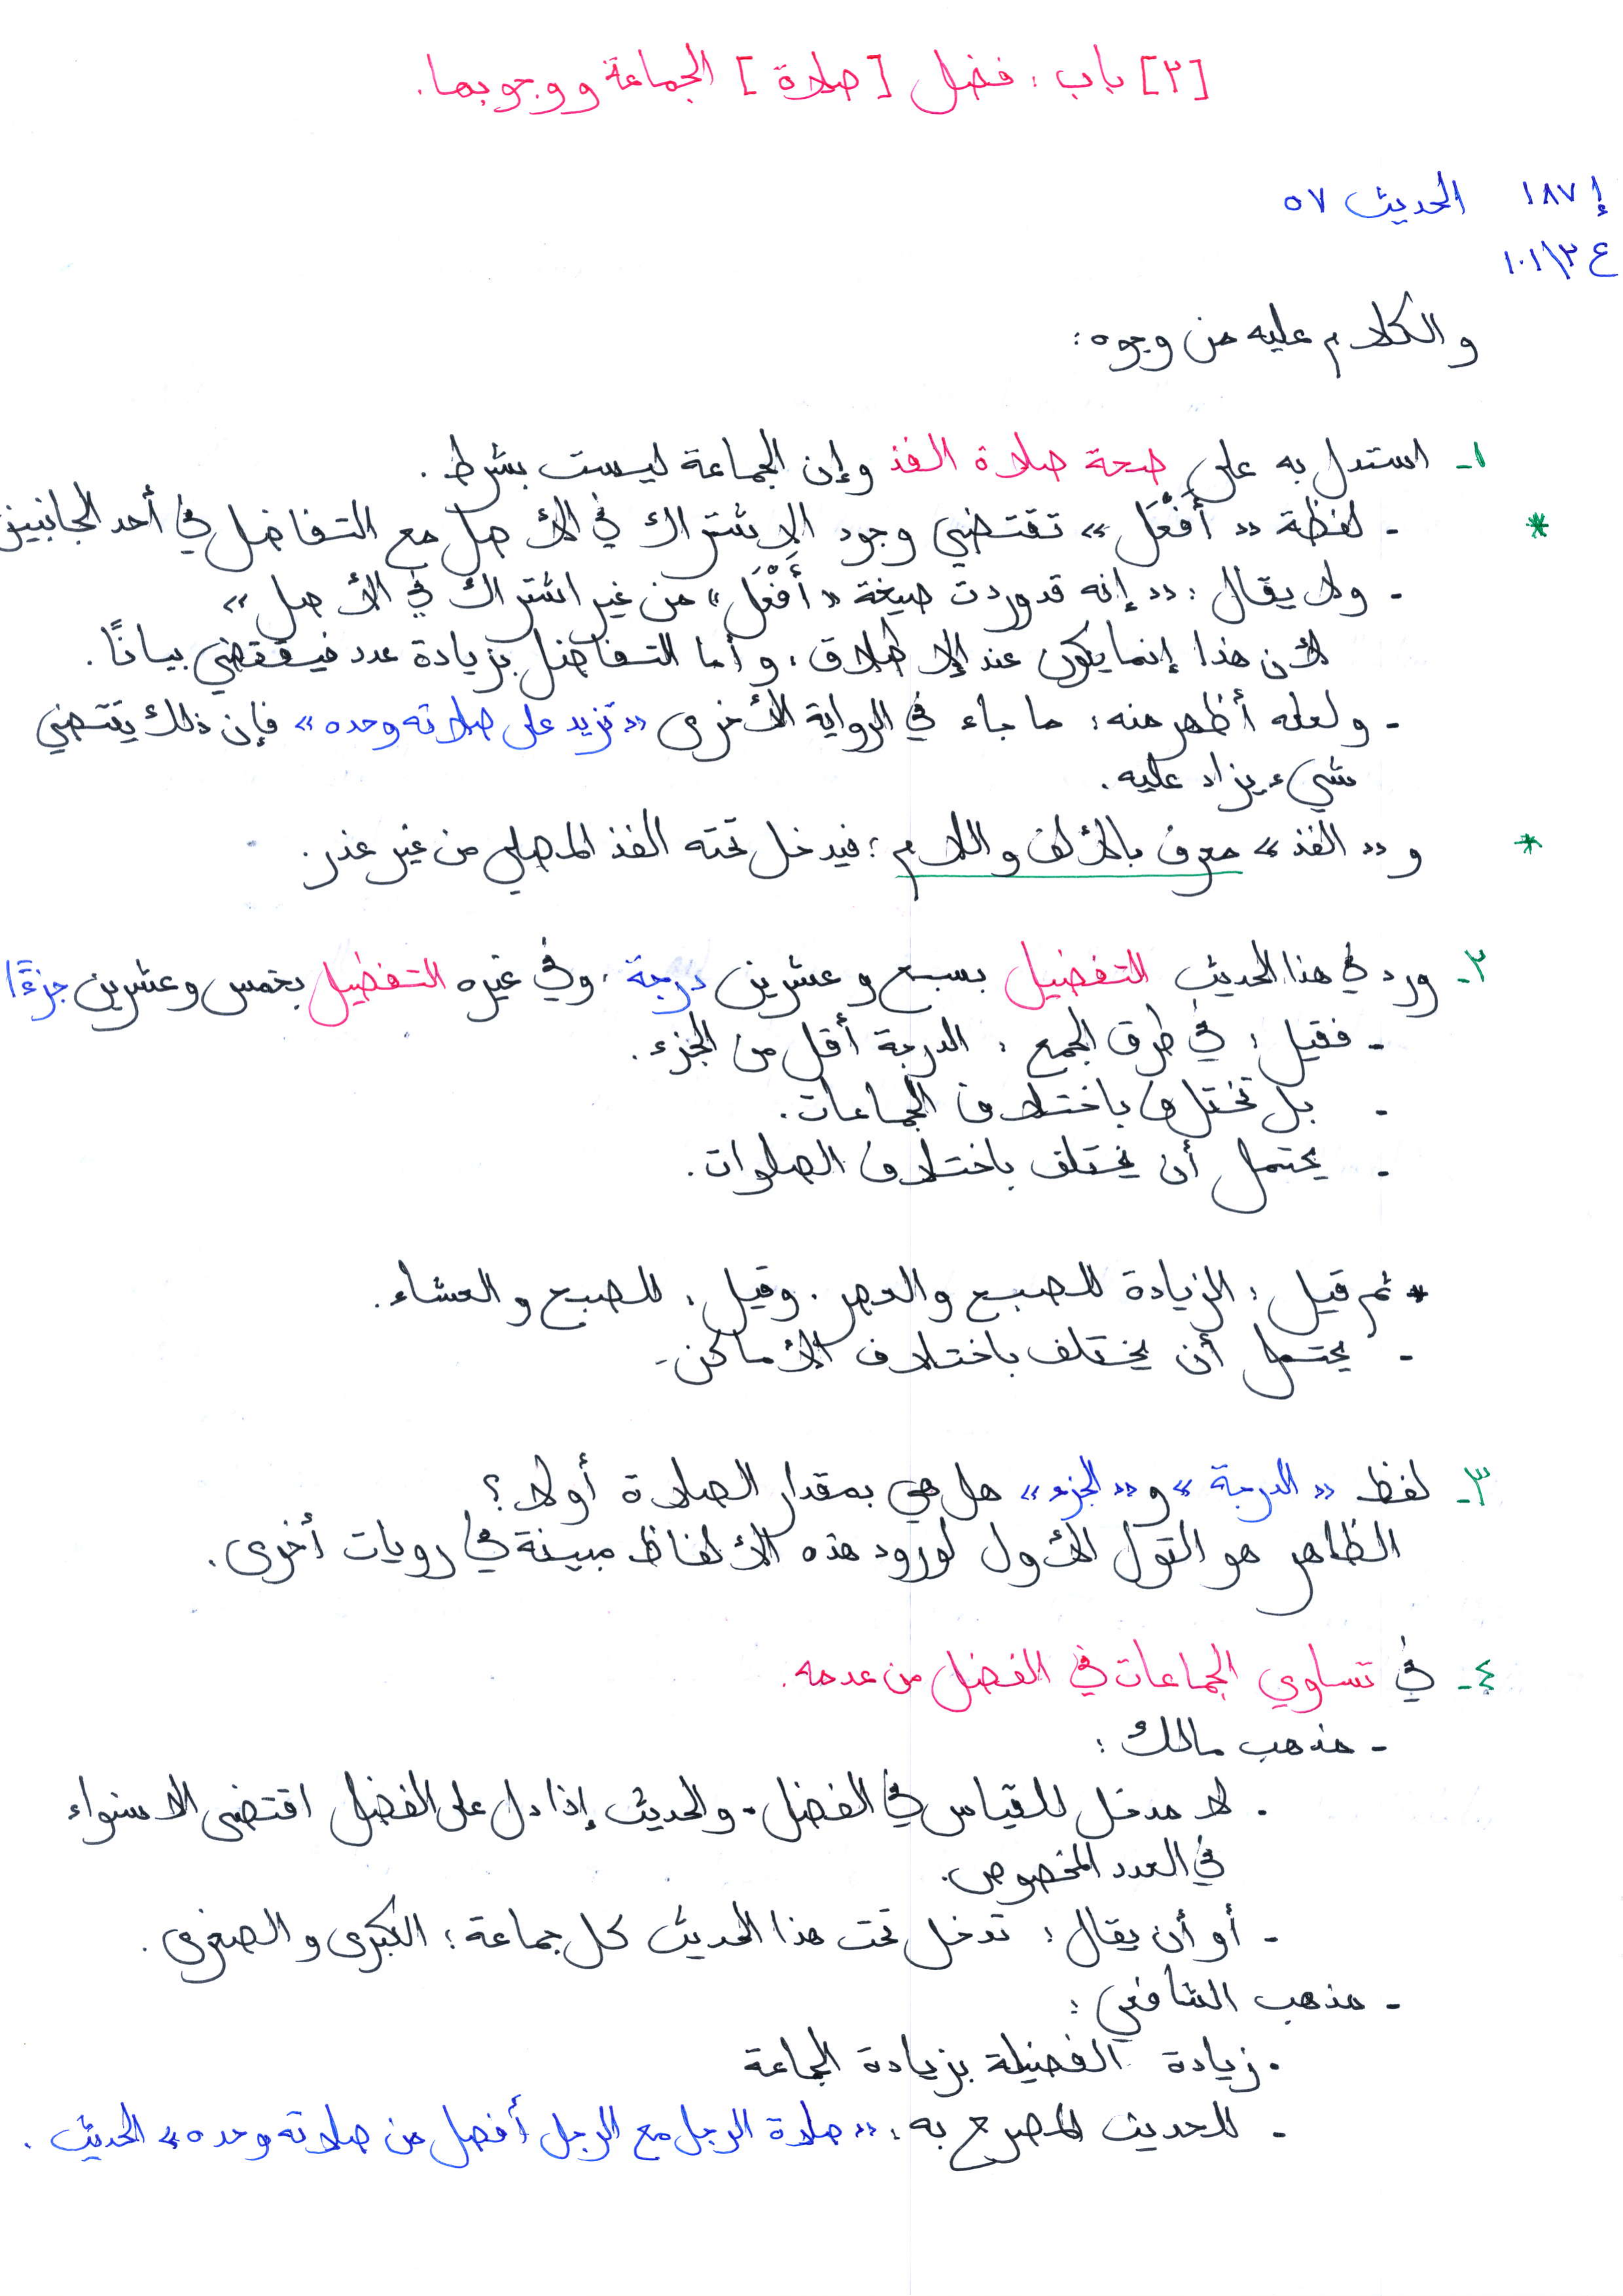 [٣] باب : فضل [صلاة] الجماعة ووجوبها .
إ ١٨٧ الحديث ٥٧
ع ٣\١٠١
والكلام عليه من وجوه :
١- استدل به على صحة صلاة الفذ وإن الجماعة ليست بشرط .
* - لفظة « أَفْعَل » تقتضي وجود الإشتراك في الأصل مع التفاضل في أحد الجانبين
- ولا يقال : « إنه قد وردت صيغة « أَفْعَل » من غير اشتراك في الأصل »
لأن هذا إنما يكون عند الإطلاق ، وأما التفاضل بزيادة عدد فيقتضي بيانًا .
- ولعله أظهر منه : ما جاء في الرواية الأخرى « تزيد على صلاته وحده » فإن ذلك يقتضي
شيء يزاد عليه .
* و « الفذ » معرف بالألف واللام ؛ فيدخل تحته الفذ المصلي من غير عذر .
٢- ورد في هذا الحديث التفضيل بسبع وعشرين درجة ، وفي غيره التفضيل بخمس وعشرين جزءًا
- فقيل : في طرق الجمع : الدرجة أقل من الجزء .
- بل تختلف باختلاف الجماعات .
- يحتمل أن يختلف باختلاف الصلوات .
* ثم قيل : الزيادة للصبح والعصر . وقيل : للصبح والعشاء .
- يحتمل أن يختلف باختلاف الأماكن .
٣- لفظ « الدرجة » و « الجزء » هل هي بمقدار الصلاة أو لا ؟
الظاهر هو القول الأول لورود هذه الألفاظ مبينة في رويات أخرى .
٤- في تساوي الجماعات في الفضل من عدمه .
- مذهب مالك :
. لا مدخل للقياس في الفضل . والحديث إذا دل على الفضل اقتضى الاستواء
في العدد المخصوص .
- أو أن يقال : تدخل تحت هذا الحديث كل جماعة ؛ الكبرى والصغرى .
- مذهب الشافعي :
. زيادة الفضيلة بزيادة الجماعة
- للحديث المصرح به : « صلاة الرجل مع الرجل أفضل من صلاته وحده » الحديث .